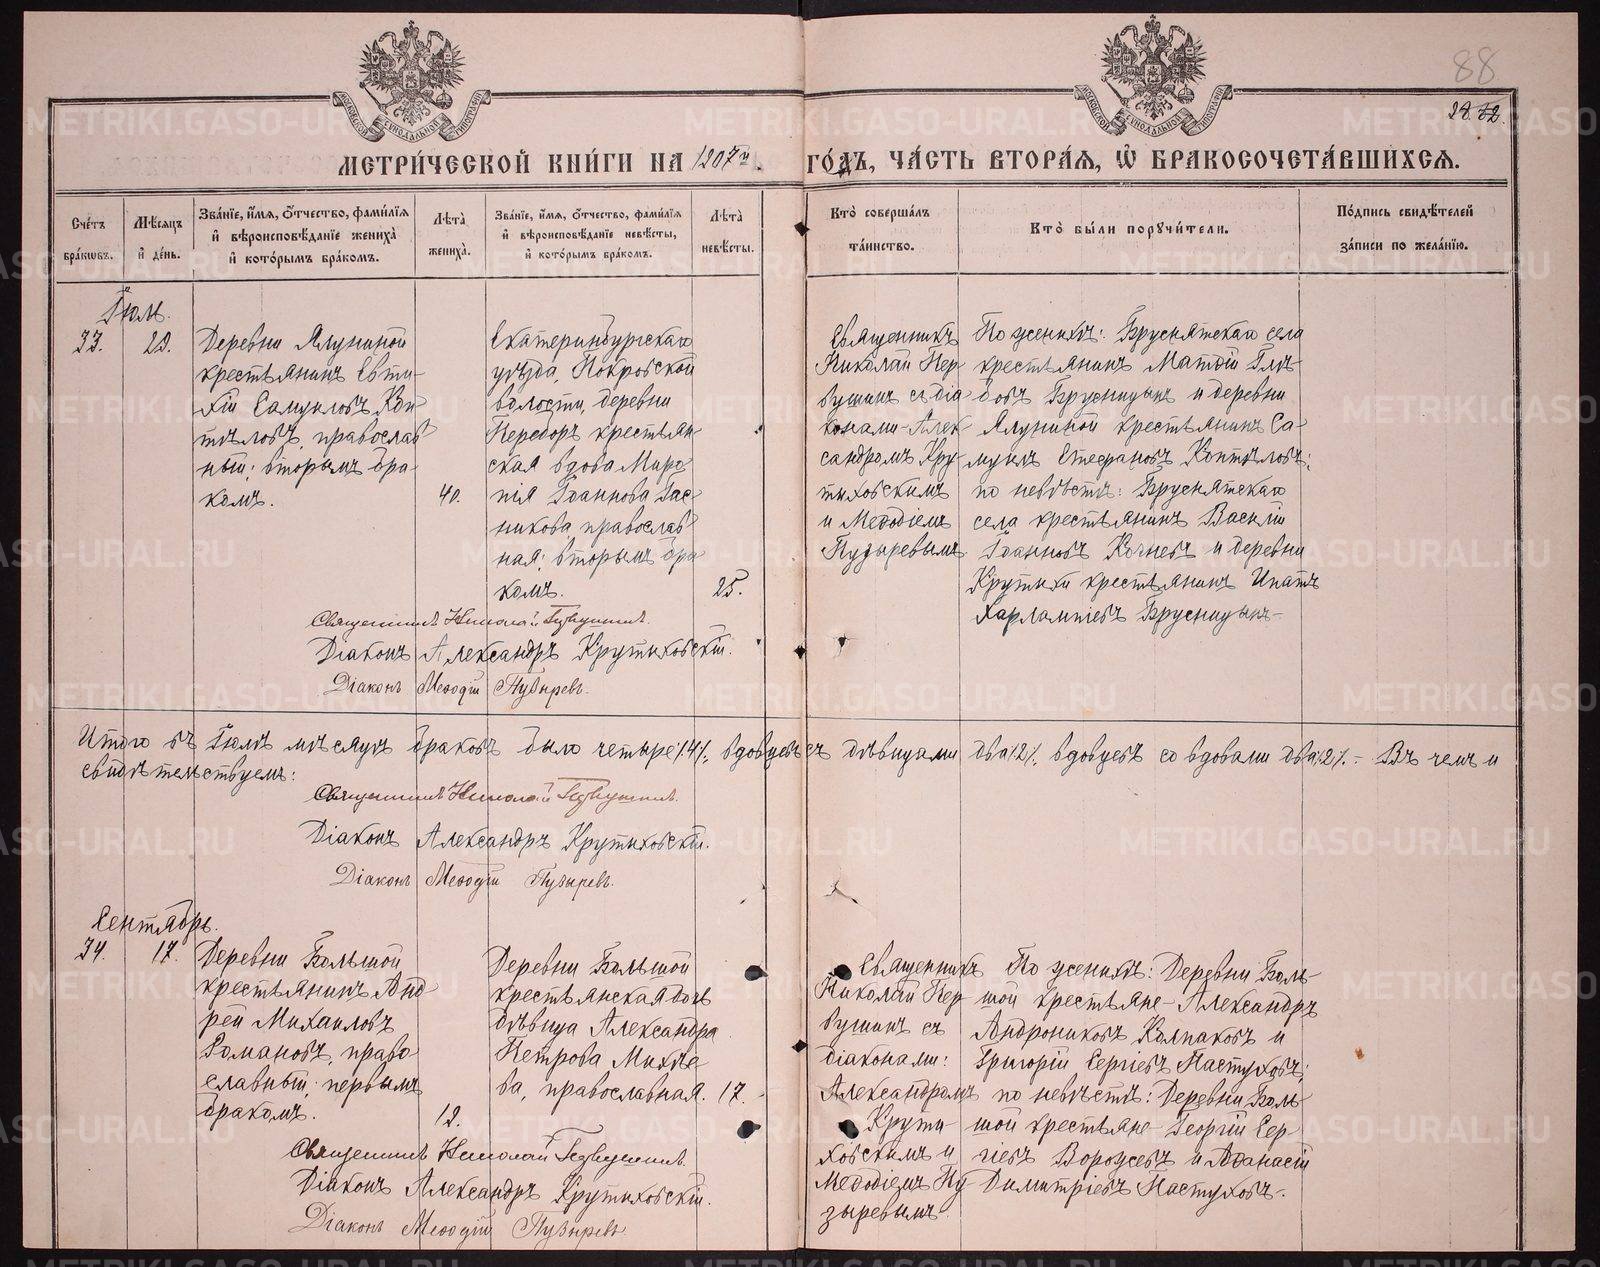 88
28.
МЕТРИ́ЧЕСКОЙ КНИ́ГИ НА 1907й ГО́ДЪ, ЧА́СТЬ ВТОРА́Я, Ѽ БРАКОСОЧЕТА́ВШИХСЯ.
Сче́тъ бра́кѡвъ.
Мѣ́сяцъ и҆ де́нь.
Зва́нїе, и҆́мя, ѻ҆́тчество, фами́лїя и҆ вѣроисповѣ́данїе жениха̀ и҆ кото́рымъ бра́комъ.
Лѣта̀ жениха̀.
Зва́нїе, и҆́мя, ѻ҆́тчество, фами́лїя и҆ вѣроисповѣ́данїе невѣ́сты, и҆ кото́рымъ бра́комъ.
Лѣта̀ невѣ́сты.
Кто̀ соверша́лъ та́инство.
Кто̀ бы́ли поручи́тели.
По́дпись свидѣ́телей за́писи по жела́нїю.
Іюль.
33.
29.
Деревни Ялуниной
крестьянинъ Евти-
хій Самуиловъ Коп-
тѣловъ, православ-
ный; вторымъ бра-
комъ.
40.
Екатеринбургскаго
уѣзда, Покровской
волости, деревни
Переборъ крестьян-
ская вдова Миро-
пія Іоаннова
никова православ-
ная; вторымъ бра-
комъ.
25.
Священникъ
Николай Пер-
вушинъ съ діа-
конами-Алек-
сандромъ Кру-
тиховскимъ
и Меѳодіемъ
Пузыревымъ
По женихѣ: Бруснятскаго села
крестьянинъ Матѳій Глѣ-
бовъ Брусницынъ и деревни
Ялуниной крестьянинъ Са-
муилъ Стефановъ Коптѣловъ;
по невѣстѣ: Бруснятскаго
села крестьянинъ Василій
Іоанновъ Кочневъ и деревни
Крутихи крестьянинъ Ипатъ
Харлампіевъ Брусницынъ-
Священникъ Николай Первушинъ.
Діаконъ Александръ Крутиховскій.
Діаконъ Меѳодій Пузыревъ.
Итого въ Іюлѣ мѣсяцѣ браковъ было четыре /4/; вдовцевъ съ дѣвицами два /2/, вдовцевъ со вдовами два /2/. - Въ чемъ и
свидѣтельствуемъ:
Священникъ Николай Первушинъ.
Діаконъ Александръ Крутиховскій.
Діаконъ Меѳодій Пузыревъ.
Сентябрь.
34.
17.
Деревни Большой
крестьянинъ Анд-
рей Михаиловъ
Романовъ, право-
славный; первымъ
бракомъ.
Деревни Большой
крестьянская дочь
дѣвица Александра
Петрова Михѣе-
ва, православная.
17.
Священникъ
Николай Пер-
вушинъ съ
діаконами:
Александромъ
Крути-
ховскимъ и
Меѳодіемъ Пу-
зыревымъ
По женихѣ: Деревни Боль-
шой крестьяне-Александръ
Андрониковъ Колпаковъ и
Григорій Сергіевъ Пастуховъ;
по невѣстѣ: Деревни Боль-
шой крестьяне-Георгій Сер-
гіевъ Ворожевъ и Аѳанасій
Димитріевъ Пастуховъ-.
Священникъ Николай Первушинъ.
Діаконъ Александръ Крутиховскій.
Діаконъ Меѳодій Пузыревъ
METRIKI.GASO-URAL.RU